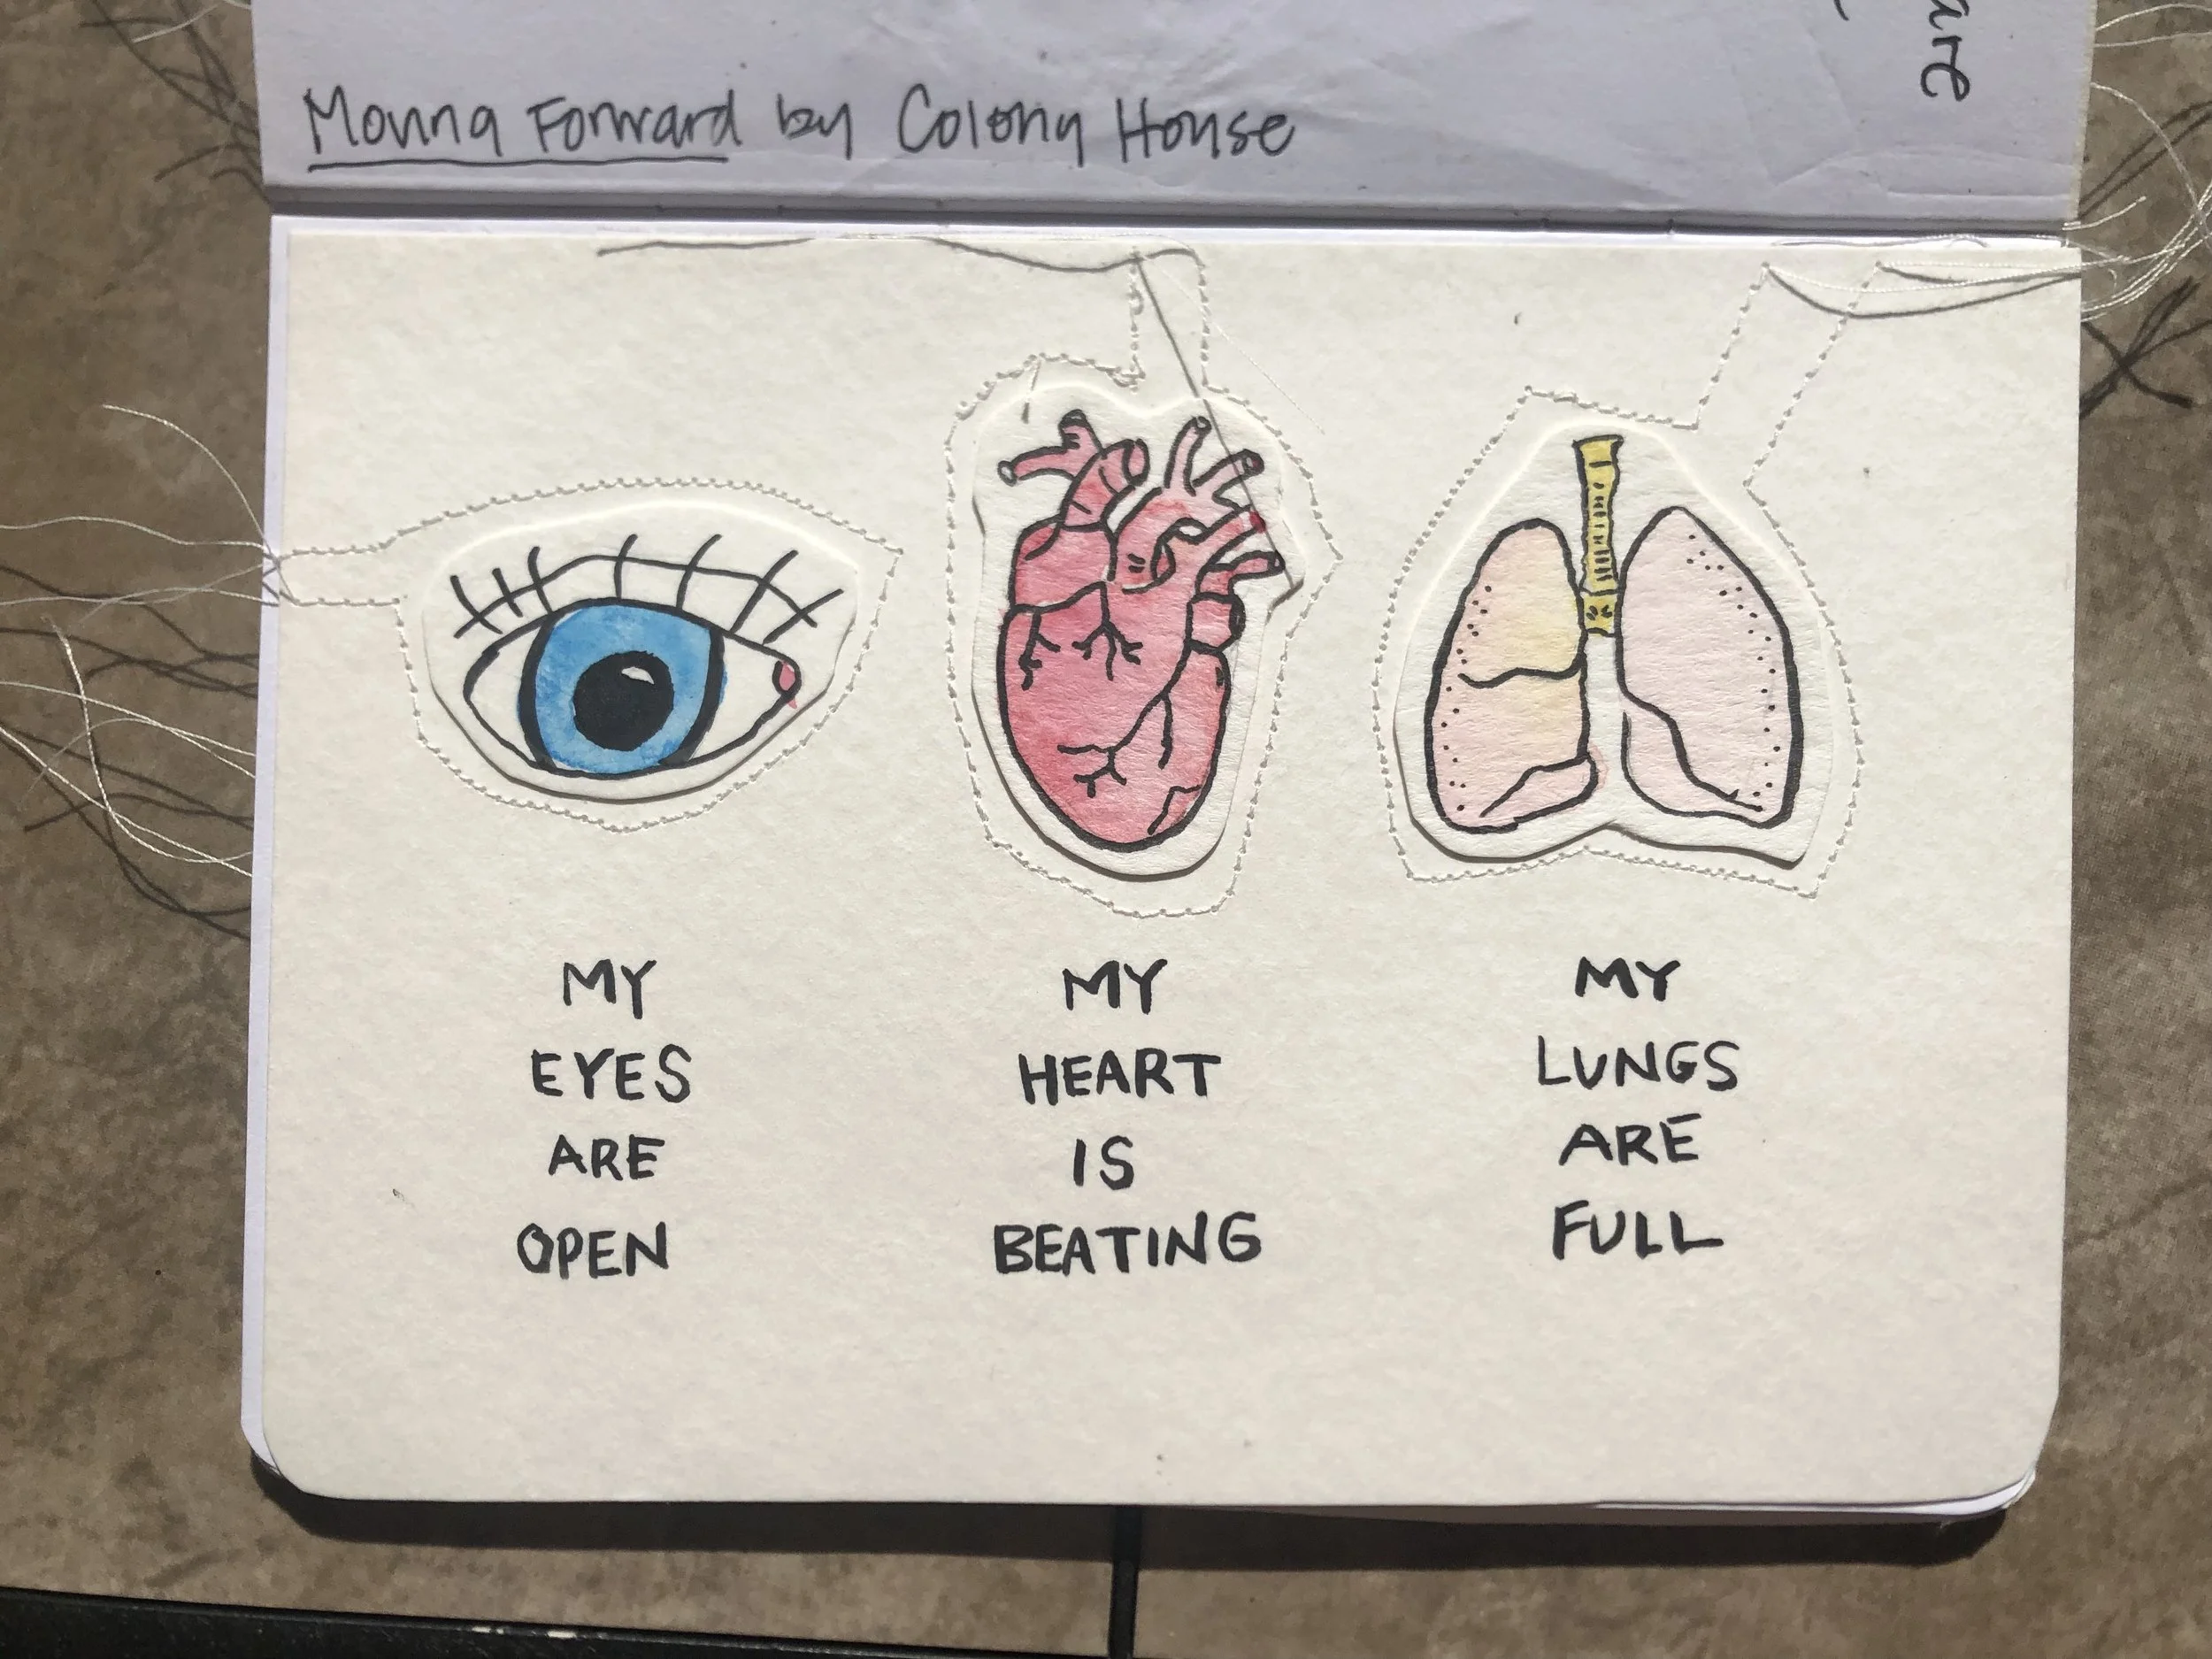 Moving Forward by Colony House
are
MY
EYES
ARE
OPEN
MY
HEART
IS
BEATING
MY
LUNGS
ARE
FULL